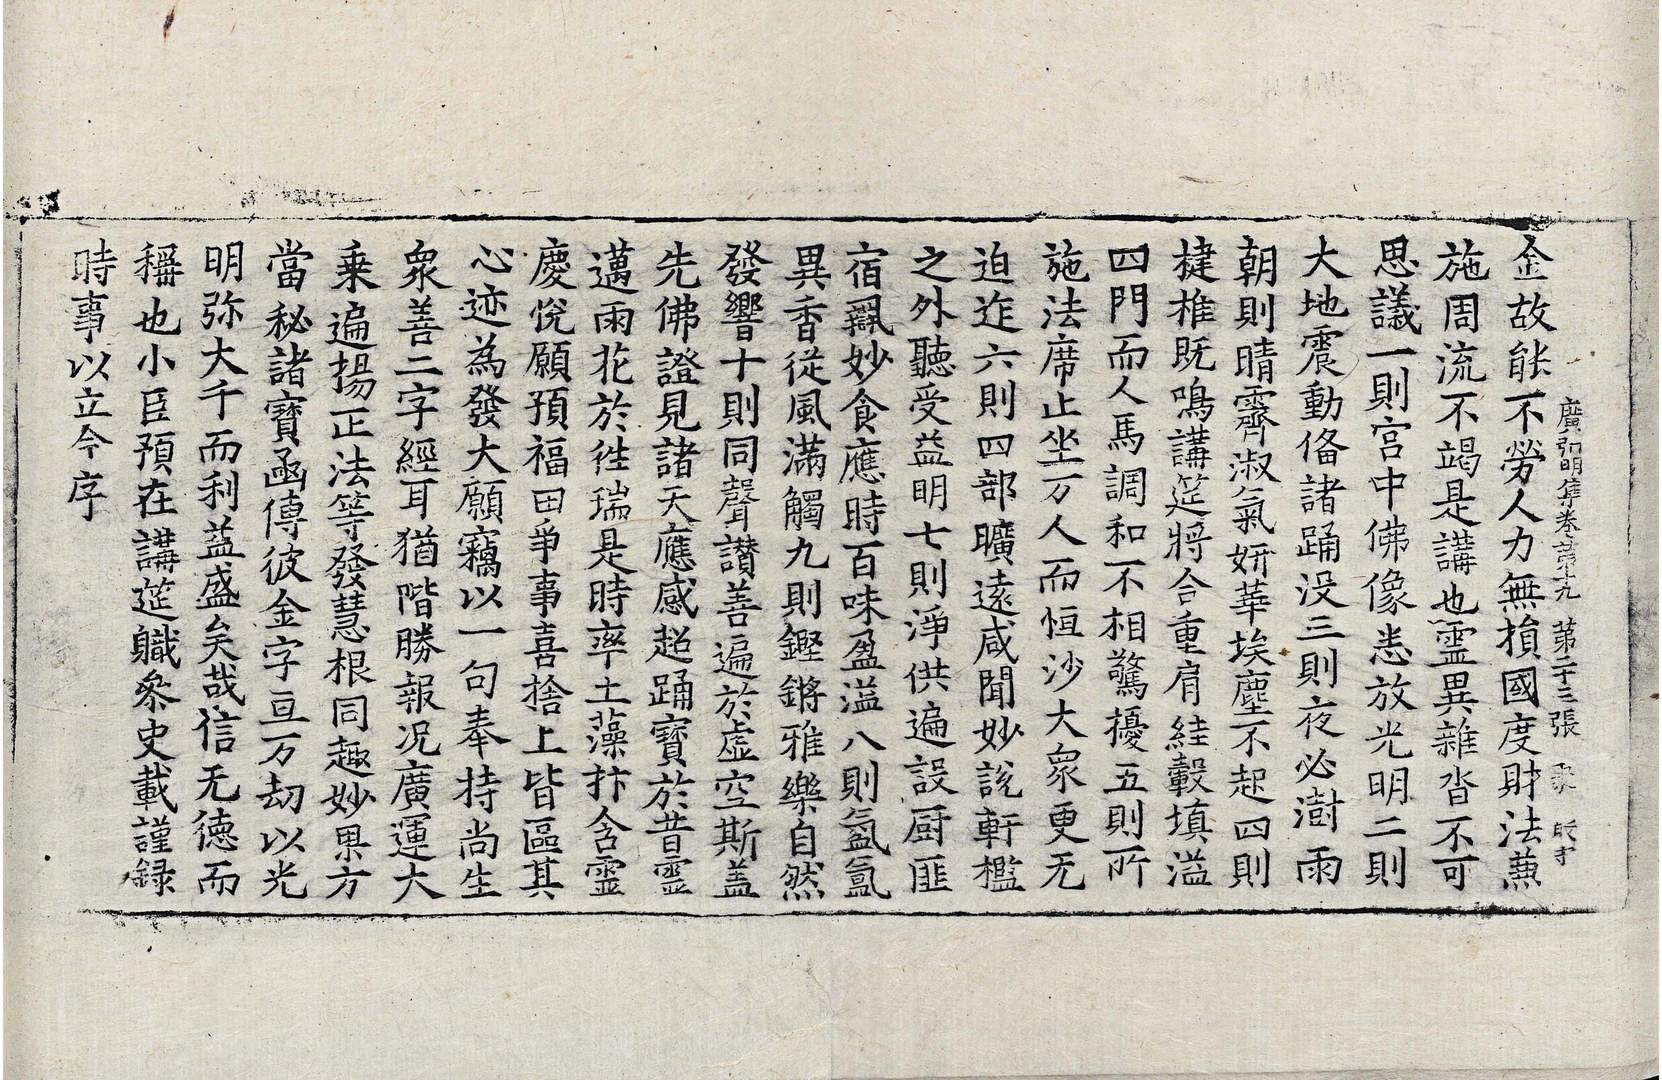 廣弘明集卷第十九 第二十三張
金故能不勞人力無損國度財法兼
施周流不竭是講也霊異雜沓不可
思議一則宫中佛像悉放光明二則
大地震動俻諸踊没三則夜必澍雨
朝則晴霽淑氣妍華埃塵不起四則
揵椎既鳴講筵將合重肩絓轂填溢
四門而人馬調和不相驚擾五則所
施法席止坐万人而恒沙大衆更无
迫迮六則四部曠遠咸聞妙説軒檻
之外聽受益明七則淨供遍設厨匪
宿爨妙食應時百味盈溢八則氤氲
異香從風滿觸九則鏗鏘雅樂自然
發響十則同聲讃善遍於虚空斯盖
先佛證見諸天應感超踊寳於昔霊
邁雨花於徃瑞是時率土藻抃含霊
慶悅願預福田爭事喜捨上皆區其
心迹為發大願竊以一句奉持尚生
衆善二字經耳猶階勝報况廣運大
乗遍揚正法等發慧根同趣妙果方
當秘諸寳函傳彼金字亘万劫以光
明弥大千而利益盛矣哉信无德而
稱也小臣預在講筵職叅史載謹録
時事以立今序